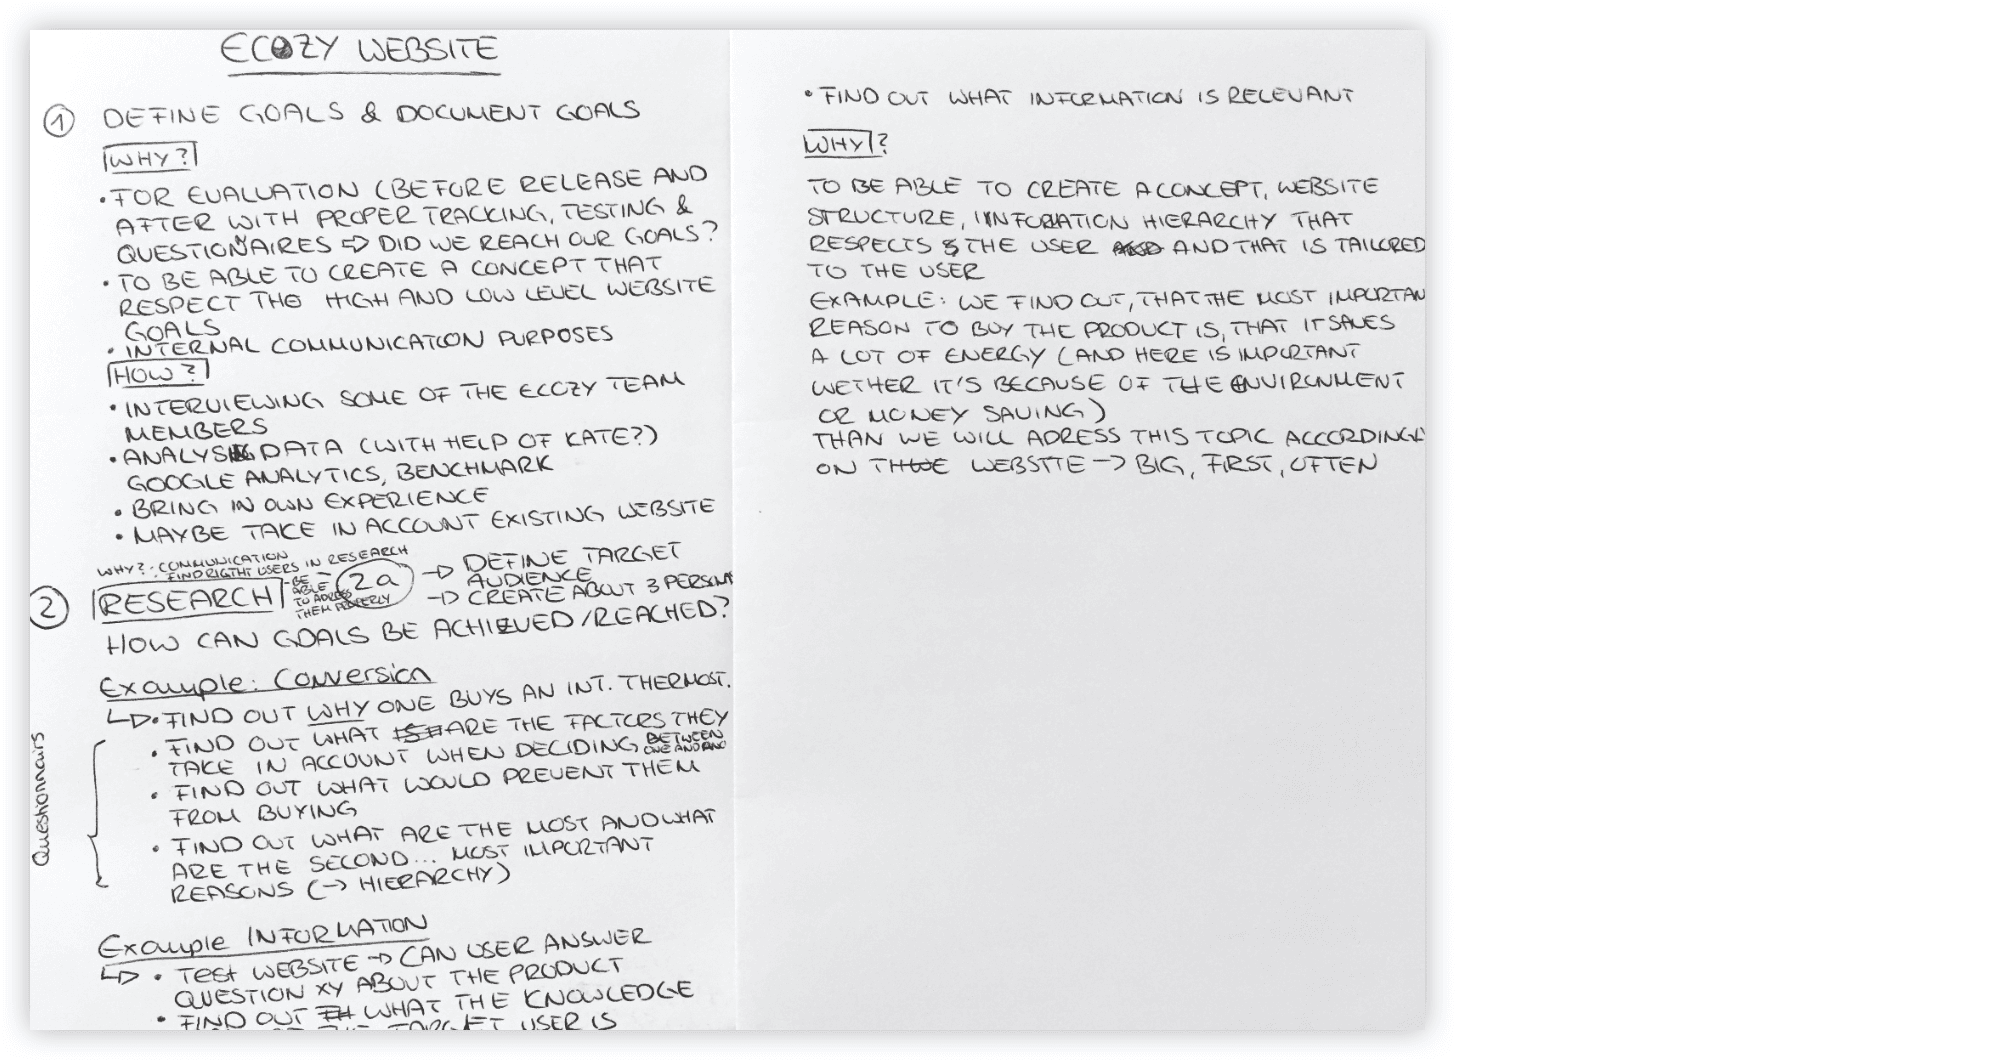 ECOZY WEBSITE
1 DEFINE GOALS & DOCUMENT GOALS
WHY?
• FOR EVALUATION (BEFORE RELEASE AND
AFTER WITH PROPER TRACKING, TESTING &
QUESTIONNAIRES ⇨ DID WE REACH OUR GOALS?
• TO BE ABLE TO CREATE A CONCEPT THAT
RESPECT THE HIGH AND LOW LEVEL WEBSITE
GOALS
• INTERNAL COMMUNICATION PURPOSES
HOW?
• INTERVIEWING SOME OF THE ECOZY TEAM
MEMBERS
• ANALYSE DATA (WITH HELP OF KATE?)
GOOGLE ANALYTICS, BENCHMARK
• BRING IN OWN EXPERIENCE
• MAYBE TAKE IN ACCOUNT EXISTING WEBSITE
WHY?: COMMUNICATION
FIND RIGTHT USERS IN RESEARCH
- BE ABLE TO ADRESS THEM PROPERLY
2 RESEARCH 2a → DEFINE TARGET
AUDIENCE
→ CREATE ABOUT 3 PERSONA
HOW CAN GOALS BE ACHIEVED/REACHED?
Example: Conversion
↳ • FIND OUT WHY ONE BUYS AN INT. THERMOST.
Questionnairs
• FIND OUT WHAT ARE THE FACTORS THEY
TAKE IN ACCOUNT WHEN DECIDING BETWEEN
ONE AND
• FIND OUT WHAT WOULD PREVENT THEM
FROM BUYING
• FIND OUT WHAT ARE THE MOST AND WHAT
ARE THE SECOND... MOST IMPORTANT
REASONS (→ HIERARCHY)
Example INFORMATION
↳ • TEST WEBSITE → CAN USER ANSWER
QUESTION XY ABOUT THE PRODUCT
• FIND OUT WHAT THE KNOWLEDGE
TARGET USER IS
• FIND OUT WHAT INFORMATION IS RELEVANT
WHY?
TO BE ABLE TO CREATE A CONCEPT, WEBSITE
STRUCTURE, INFORMATION HIERARCHY THAT
RESPECTS THE USER AND THAT IS TAILORED
TO THE USER
EXAMPLE: WE FIND OUT, THAT THE MOST IMPORTAN
REASON TO BUY THE PRODUCT IS, THAT IT SAVES
A LOT OF ENERGY (AND HERE IS IMPORTANT
WETHER IT'S BECAUSE OF THE ENVIRONMENT
OR MONEY SAVING)
THAN WE WILL ADRESS THIS TOPIC ACCORDINGLY
ON THE WEBSITE → BIG, FIRST, OFTEN